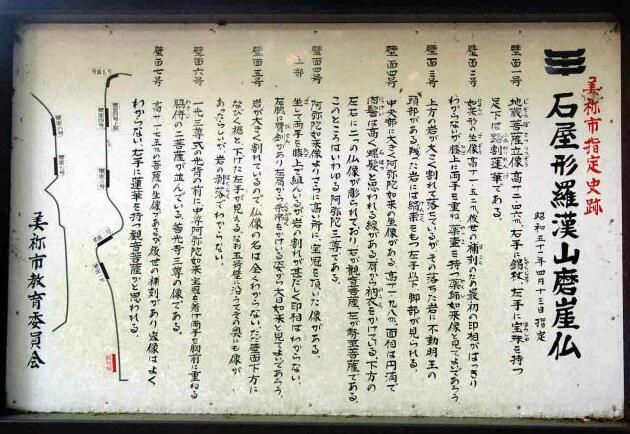 美祢市指定史跡
三 石屋形羅漢山磨崖仏
昭和五十一年四月十三日 指定
壁面一号 地蔵菩薩立像 高サ二・四六㍍ 右手に錫杖 左手に宝珠を持つ
足下は踏割蓮華である。
壁面二号 如来形の坐像 高サ一・五二㍍ 後世の補刻のため最初の印相がはっきり
わからないが膝上に両手を重ね 薬壷を持つ薬師如来像と見てよいであろう
壁面三号 上方の岩が大きく割れて落ちているがその落ちた岩に不動明王の
頭部がある。残った岩には絹索をもつ左手以下 脚部が見られる。
壁面四号 中央部に大きな阿弥陀如来の坐像がある 高サ一・九八㍍ 面相は円満で
肉髻は高く螺髪と思われる線がある 肩から衲衣をかけている。下方の
左右に二つの仏像が彫られており右が観音菩薩 左が勢至菩薩である。
このところはいわゆる阿弥陀三尊である。
壁面四号 上部 阿弥陀如来像よりさらに高い所に宝冠を頂いた像がある。
坐して両手を膝上で組んでいるが岩の割れが甚だしく印相はわからない。
左腕に臂釧があり左肩から条帛をかけている姿から大日如来と見てよいであろう
壁面五号 岩が大きく割れているので仏像の名は全くわからない。ただ壁面下方に
なびく裾と下げた左手が見える。なお五号壁に沿ってその奥にも像が
あったらしいが岩の剥落でわからない。
壁面六号 一光三尊式の光背の前に中尊阿弥陀如来 宝冠を着け両手を胸前に重ねる
脇侍の二菩薩が並んでいる。善光寺三尊の像である。
壁面七号 高サ一・七五㍍の菩薩の坐像であるが後世の補刻があり尊像はよく
わからない。左手に蓮華を持つ観音菩薩かと思われる。
美祢市教育委員会